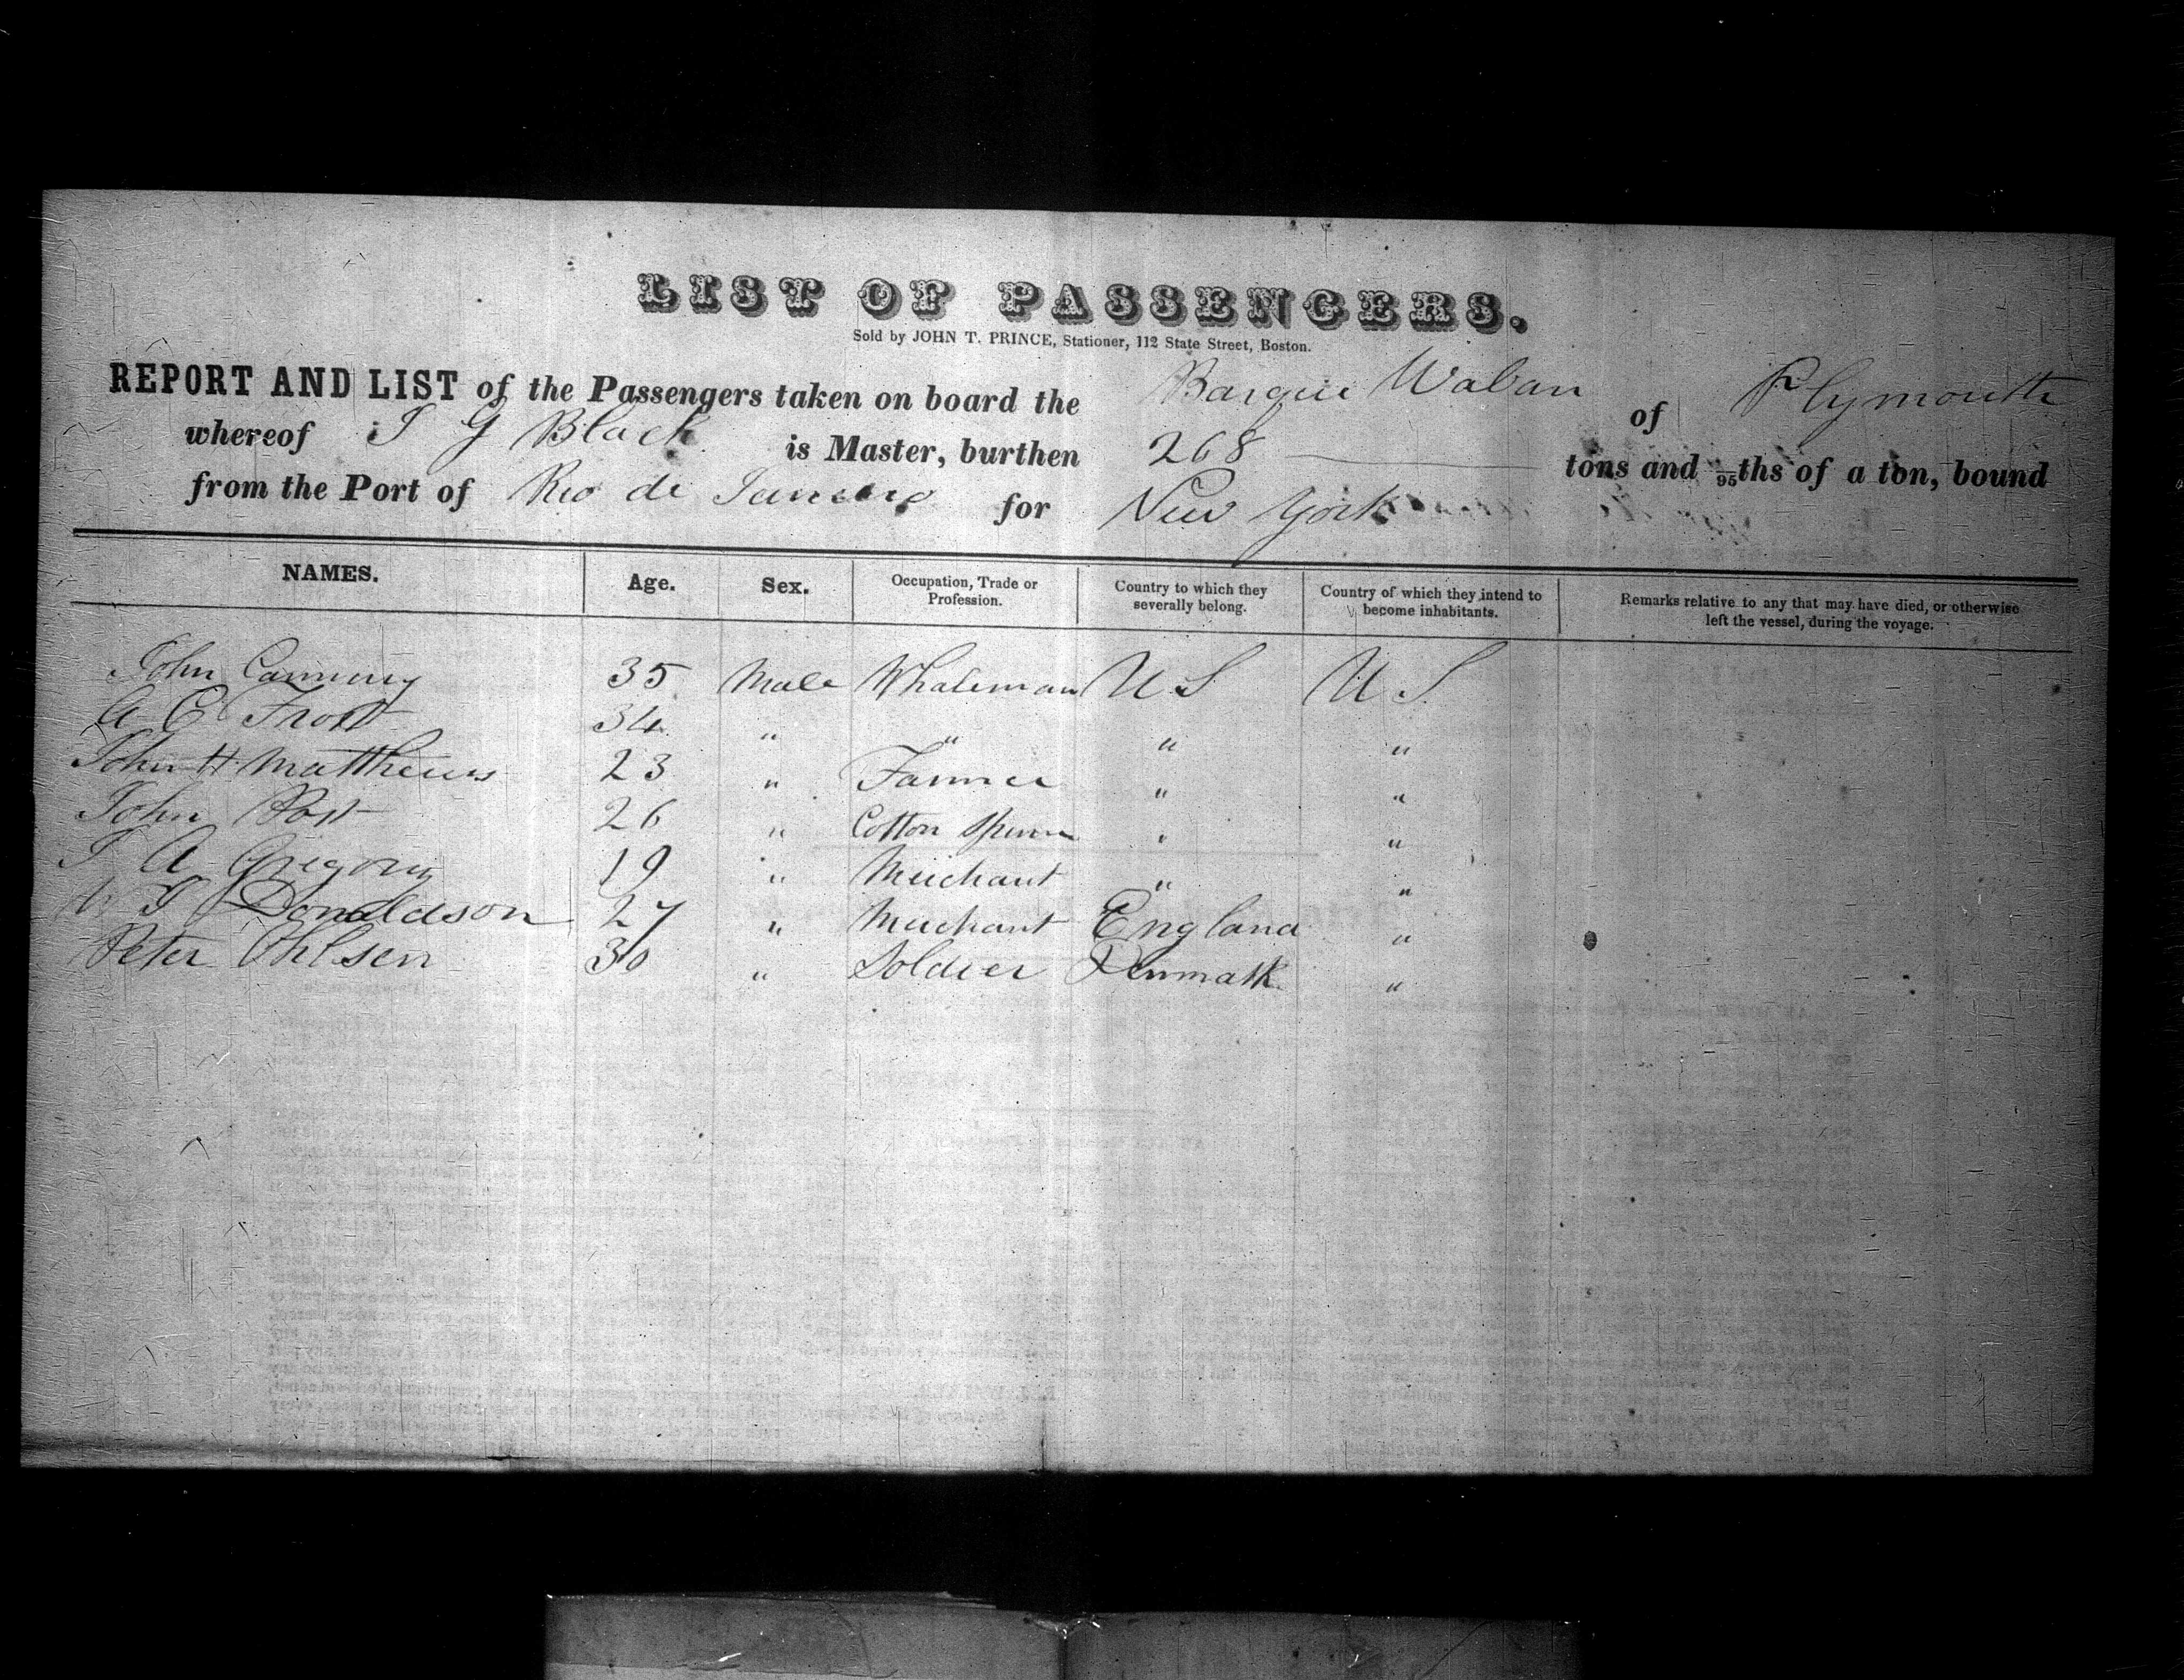 LIST OF PASSENGERS.
Sold by JOHN T. PRINCE, Stationer, 112 State Street, Boston.
REPORT AND LIST of the Passengers taken on board the Barque Waban of Plymouth
whereof I G Black is Master, burthen 268 tons and 95ths of a ton, bound
from the Port of Rio de Janeiro for New York
NAMES. Age. Sex. Occupation, Trade or Profession. Country to which they severally belong. Country of which they intend to become inhabitants. Remarks relative to any that may have died, or otherwise left the vessel, during the voyage.
John Canning 35 Male Whaleman U S U S
A C Frost 34 " " " "
John H Matthews 23 " Farmer " "
John Post 26 " Cotton " "
A Gregory 19 " Merchant " "
Donaldson 27 " Merchant England "
Peter Ohlsen 30 " Soldier Denmark "